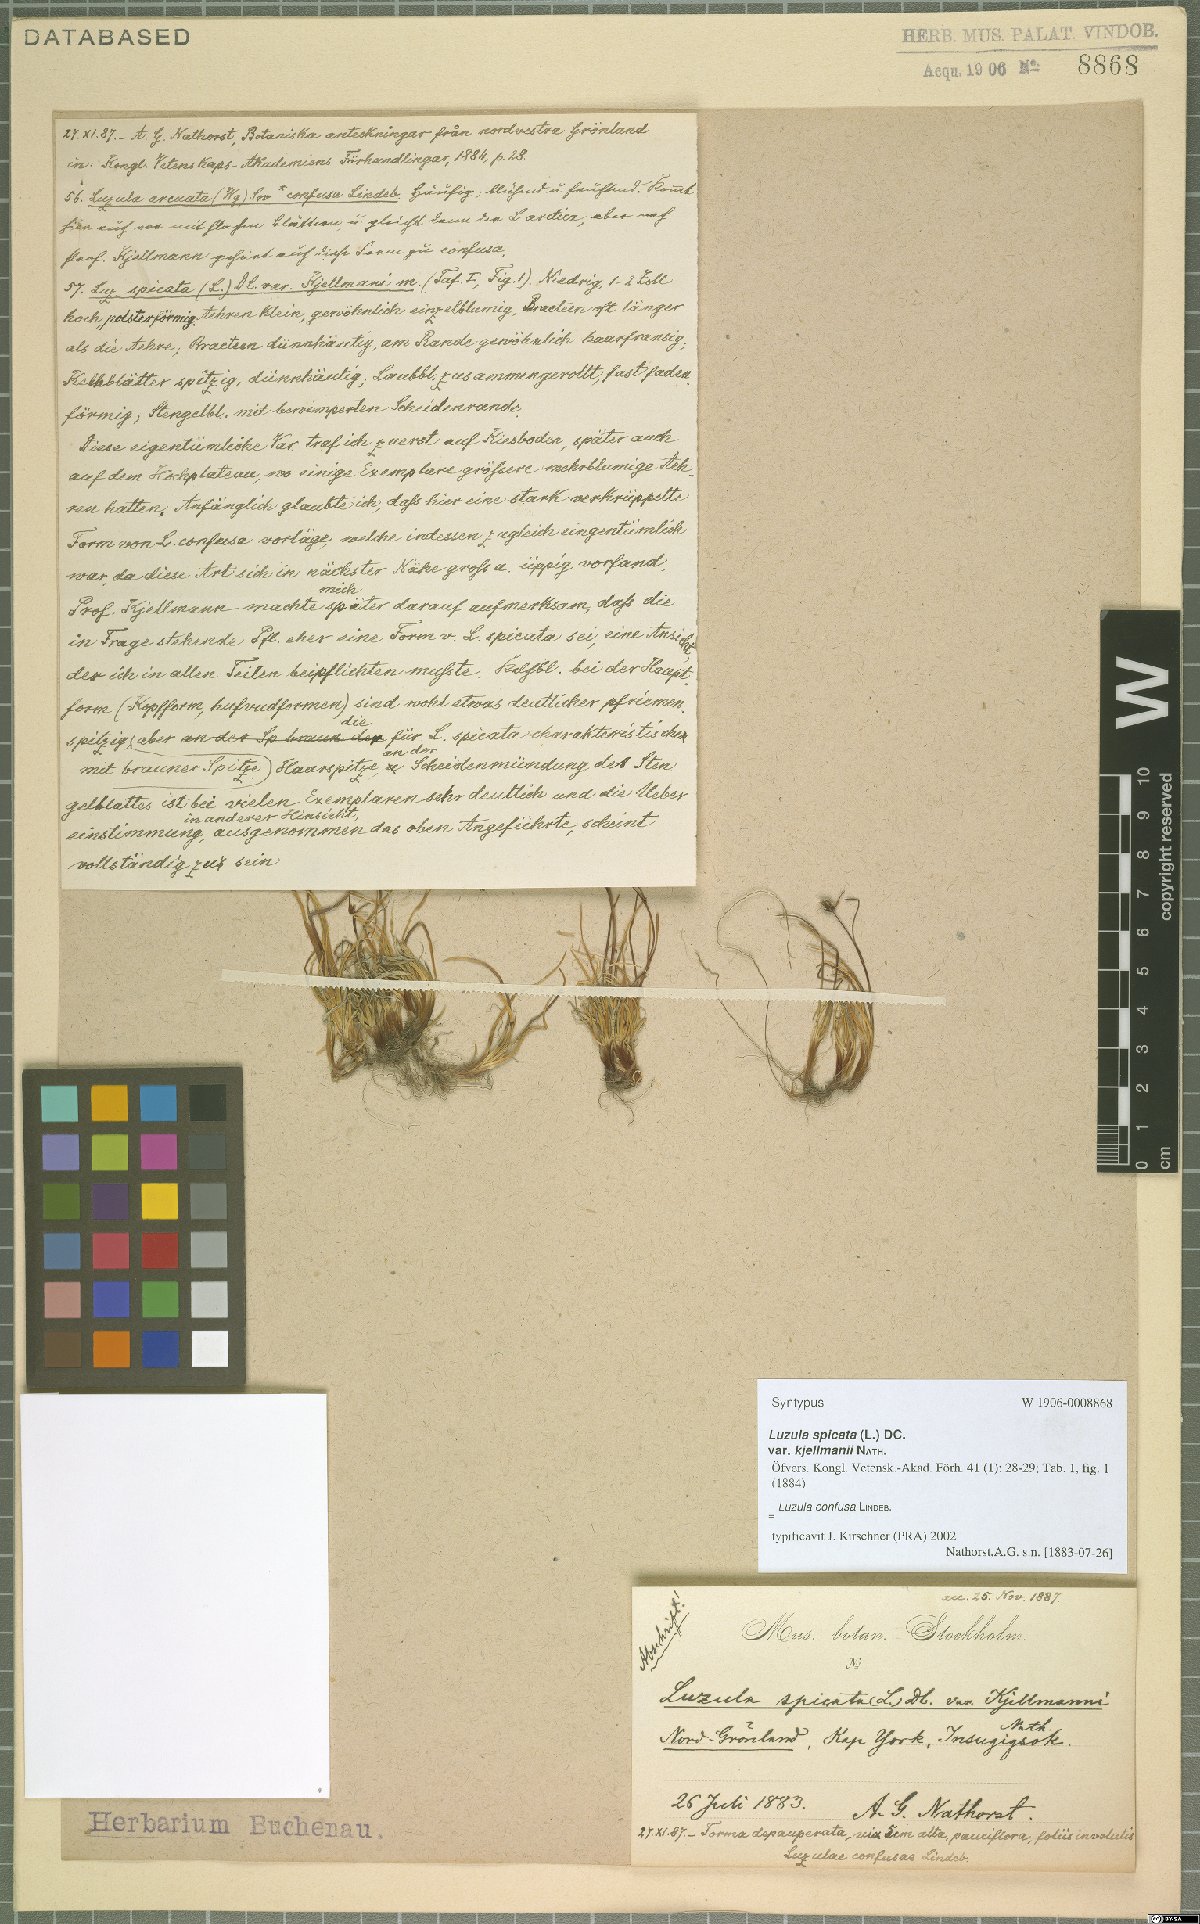 DATABASED
HERB. MUS. PALAT. VINDOB.
Acqu. 1906 No
8868
27.XI.87.- A. G. Nathorst, Botaniska anteckningar från nordvestra Grönland
in: Kongl. Vetenskaps-Akademiens Förhandlingar, 1884, p. 28.
56. Luzula arcuata (Wg) Sw * confusa Lindeb. Häufig, blühend u fruchtend. Kommt
hier auch vor mit flachen Blättern, u gleicht dann der L arctica, aber nach
Prof. Kjellmann gehört auch diese Form zu confusa.
57. Luz. spicata (L.) DC. var. Kjellmani m. (Taf. I, Fig. 1). Niedrig, 1-2 Zoll
hoch, polsterförmig, Aehren klein, gewöhnlich einzelblumig, Bracteen oft länger
als die Aehre; Bracteen dünnhäutig, am Rande gewöhnlich haarfransig;
Kelchblätter spitzig, dünnhäutig; Laubbl. zusammengerollt, fast faden
förmig; Stengelbl. mit bewimperten Scheidenrande.
Diese eigentümliche Var. traf ich zuerst auf Kiesboden, später auch
auf dem Hochplateau, wo einige Exemplare grössere mehrblumige Aeh-
ren hatten. Anfänglich glaubte ich, dafs hier eine stark verkrüppelte
Form von L. confusa vorläge, welche indessen zugleich eingentümlich
war, da diese Art sich in nächster Nähe gross u. üppig vorfand.
Prof. Kjellmann machte mich später darauf aufmerksam, dafs die
in Frage stehende Pfl. eher eine Form v. L. spicata sei, eine Ansicht,
der ich in allen Teilen beipflichten mufste. Kelchbl. bei der Haupt-
form (Kopfform, hufvudformen) sind wohl etwas deutlicher pfriemen-
spitzig; aber an der Sp braun der die für L. spicata charakteristische
mit brauner Spitze) Haarspitze, an der Scheidenmündung des Sten
gelblattes ist bei vielen Exemplaren sehr deutlich und die Ueber
einstimmung, in anderer Hinsicht, ausgenommen das oben Angeführte, scheint
vollständig zu sein.
W
0 1 2 3 4 5 6 7 8 9 10
cm
copyright reserved
Syntypus W 1906-0008868
Luzula spicata (L.) DC.
var. kjellmanii NATH.
Öfvers. Kongl. Vetensk.-Akad. Förh. 41 (1): 28-29; Tab. 1, fig. 1
(1884)
= Luzula confusa LINDEB.
typificavit J. Kirschner (PRA) 2002
Nathorst,A.G. s.n. [1883-07-26]
acc. 25. Nov. 1887.
Abschrift!
Mus. botan. Stockholm.
No
Luzula spicata (L.) DC. var. Kjellmanni
Nath
Nord-Grönland, Kap York, Insugigsok.
26 Juli 1883. A. G. Nathorst.
27.XI.87.- Forma depauperata, vix 5cm alta, pauciflora, foliis involutis
Luzulae confusae Lindeb.
Herbarium Buchenau.